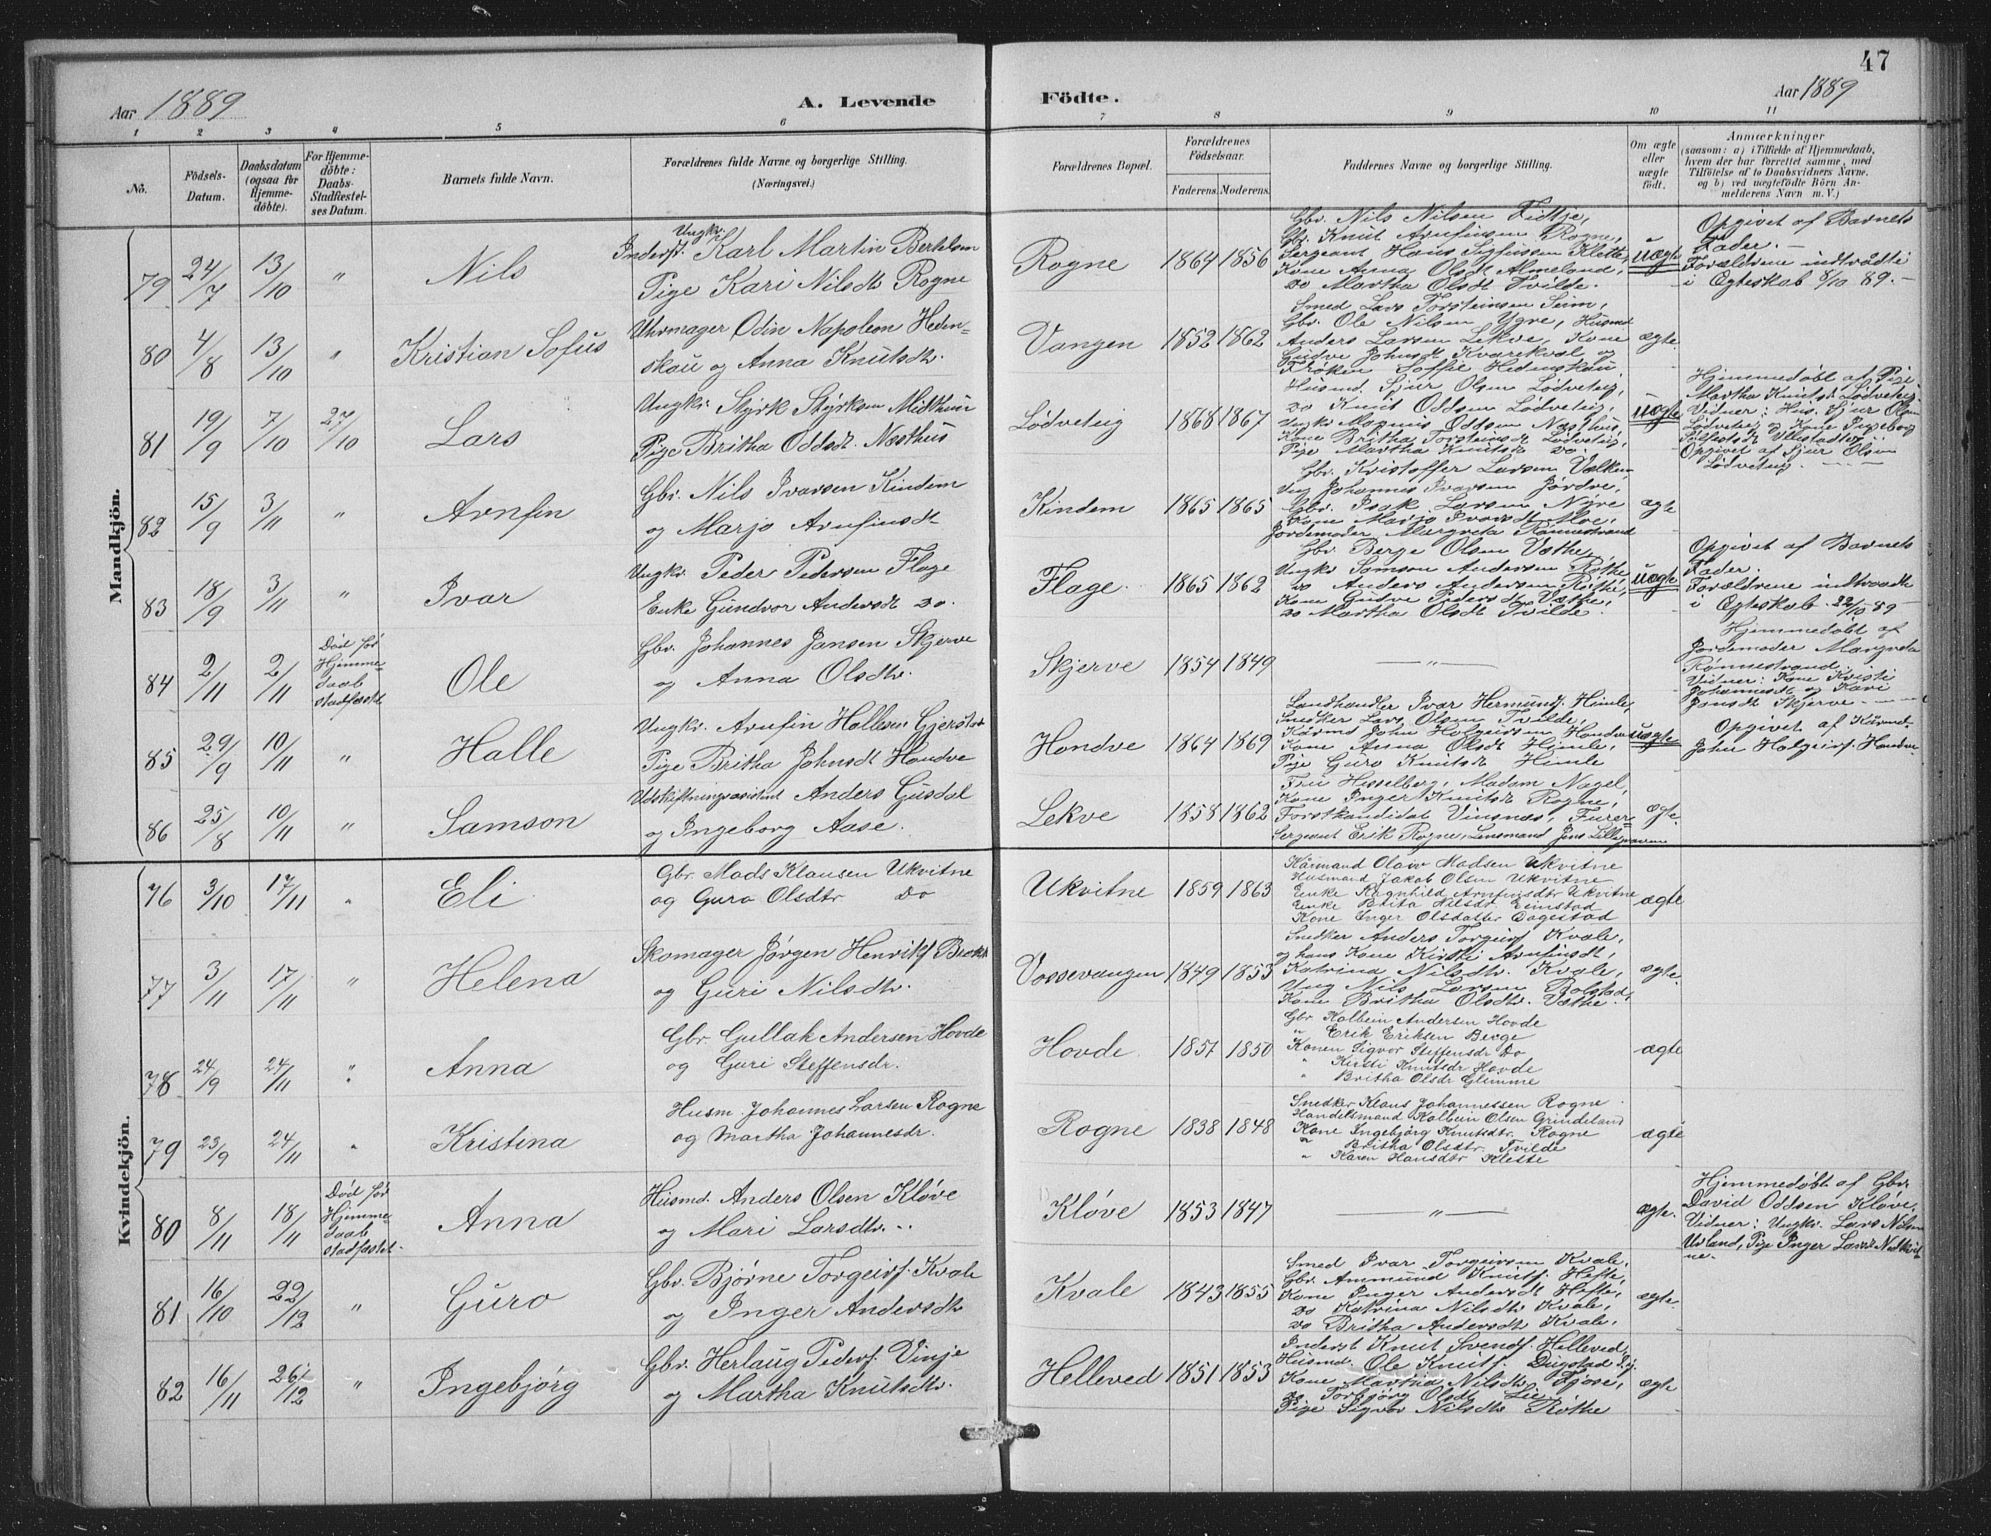 47
Aar 1889 A. Levende Födte. Aar 1889
1 2 3 4 5 6 7 8 9 10 11
No.
Födsels-
Datum.
Daabsdatum
(ogsaa for
Hjemme-
döbte).
For Hjemme-
döbte:
Daabs-
Stadfæstel-
ses Datum.
Barnets fulde Navn.
Forældrenes fulde Navne og borgerlige Stilling.
(Næringsvei.)
Forældrenes Bopæl.
Forældrenes
Födselsaar.
Faderens. Moderens.
Faddernes Navne og borgerlige Stilling.
Om ægte
eller
uægte
födt.
Anmærkninger
(saasom: a) i Tilfælde af Hjemmedaab,
hvem der har forrettet samme, med
Tilföielse af to Daabsvidners Navne,
og b) ved uægtefödte Börn An-
melderens Navn m. V.)
Mandkjön.
79 24/7 13/10 " Nils
Ungkr.
Inderst. Karl Martin Bertelsen
Pige Kari Nilsdtr Rogne
Rogne 1864 1856
Gbr. Nils Nilsen Fidtje,
Gbr. Knut Arnfinsen Rogne,
Sergeant Hans Klette,
Kone Anna Olsdt Almeland,
do Martha Olsdt Tvilde.
uægte
Opgivet af Barnets
Fader. —
Forældrene indtrådte
i Ægteskab 8/10 89. —
80 4/8 13/10 " Kristian Sofus
Uhrmager Odin Napoleon Heden-
skou og Anna Knutsdtr.
Vangen 1852 1862
Smed Lars Torsteinsen Seim,
Gbr. Ole Nilsen Ygre, Husmd
Anders Larsen Lekve, Kone
Gudve Johnsdt Kvarekval og
Frøken Soffie Hedenskou
ægte
81 19/9 7/10 27/10 Lars
Ungkr. Styrk Styrksen Midthun
Pige Britha Oddsdt. Næsthus
Lødveteig 1868 1867
Husmd. Sjur Olsen Lødveteig,
do Knut Oddsen Lødveteig,
Ungk Magnus Oddsen Næsthus,
Kone Britha Torsteinsdt Lødveteig,
Pige Martha Knutsdt do.
uægte
Hjemmedøbt af Pige
Martha Knutsdt Lødveteig.
Vidner: Hus. Sjur Olsen
Lødveteig og Kone Ingeborg
Ullestadtveit.
Opgivet af Sjur Olsen
Lødveteig. — — —
82 15/9 3/11 " Arnfin
Gbr. Nils Ivarsen Kindem
og Marjo Arnfinsdt
Kindem 1865 1865
Gbr. Kristoffer Larsen Vælken
Ung Johannes Ivarsen Jørdre,
Gbr. Isak Larsen Nøre
Kone Marjo Ivarsdt Moe,
Jordemoder Margreta Rønnestrand
ægte
83 18/9 3/11 " Ivar
Ungkr. Peder Pedersen Flage
Enke Gundvor Andersdt do.
Flage. 1865 1862
Gbr. Berge Olsen Væthe,
Ungkr Samson Andersen Røthe,
do Anders Andersen Røthe,
Kone Gudve Pedersdt Væthe,
do Martha Olsdt Tvilde.
uægte
Opgivet af Barnets
Fader.
Forældrene indtraadte
i Ægteskab 22/10 89 —
84 2/11 2/11
Død før
Hjemme-
daab
stadfæstet
Ole
Gbr. Johannes Jansen Skjerve
og Anna Olsdtr.
Skjerve 1854 1849 — " —
Hjemmedøbt af
Jordemoder Margreta
Rønnestrand.
Vidner: Kone Kristi
Johannesdt og Kari
Jonsdt Skjerve — — —
85 29/9 10/11 " Halle
Ungkr. Arnfin Hallesen Gjerstad
Pige Britha Johnsdt Hondve
Hondve 1864 1869
Landhandler Ivar Hermunds. Himle,
Snedker Lars Olsen Tvilde,
Kårmd John Holgersen Hondve
Kone Anna Olsdt Himle,
Pige Guro Knutsdt Himle
uægte
Opgivet af Kårmd.
John Holgeirs. Hondve
86 25/8 10/11 " Samson
Udskiftningsassistent Anders Gusdal
og Ingeborg Aase.
Lekve 1858 1862
Fru Hesselberg, Madam Nagel,
Kone Inger Knutsdt Rogne,
Forstkandidat Vinsnæs, Furer-
Sergeant Erik Rogne, Lensmand Jens Lillegraven
ægte.
Kvindekjön.
76 3/10 17/11 " Eli
Gbr. Mads Klausen Ukvitne
og Guro Olsdtr Do
Ukvitne 1859 1863
Kårmand Olaiv Madsen Ukvitne
Husmand Jakob Olsen Ukvitne
Enke Ragnhild Arnfinsdtr Ukvitne
Enke Brita Nilsdtr Eimstad
Kone Inger Olsdatter Dagestad
ægte
77 3/11 17/11 " Helena
Skomager Jørgen Henriks
og Guri Nilsdtr.
Vossevangen 1849 1853
Snedker Anders Torgeirs. Kvale,
og hans Kone Kirsti Arnfinsdt,
Katrina Nilsdtr. Kvale,
Ung Nils Larsen Bolstad,
Kone Britha Olsdtr. Væthe.
ægte.
78 24/9 24/11 " Anna
Gbr. Gullak Andersen Hovde
og Guri Steffensdr.
Hovde. 1857 1850
Gbr Kolbein Andersen Hovde
" Erik Eriksen Berge
Konen Sigvor Steffensdr Do
" Kirsti Knutsdr Hovde
" Britha Olsdr Glimme
ægte
79 23/9 24/11 " Kristina
Husm. Johannes Larsen Rogne
og Martha Johannesdr.
Rogne 1838 1848
Snedker Klaus Johannessen Rogne
Handelsmand Kolbein Olsen Grindeland
Kone Ingebjörg Knutsdtr. Rogne
" Britha Olsdtr. Tvilde
" Karen Hansdtr Klette
ægte
80 8/11 18/11
Død før
Hjemme-
daab
stadfæstet.
Anna
Husmd. Anders Olsen Kløve
og Mari Larsdtr.
Kløve 1853 1847 — " — ægte.
Hjemmedøbt af Gbr.
David Oddsen Kløve,
Vidner: Ungkr. Lars Nilsen
Urland, Pige Inger Larsdt Nedkvit-
ne.
81 16/10 22/12 " Guro
Gbr. Bjørne Torgeirs. Kvale
og Inger Andersdtr
Kvale 1843 1855
Smed Ivar Torgeirsen Kvale,
Gbr. Ammund Knuts. Hefte,
Kone Inger Andersdt Hefte,
do Katrina Nilsdtr Kvale,
do Britha Andersdtr Kvale.
ægte.
82 16/11 26/12 " Ingebjørg
Gbr. Herlaug Peders. Vinje
og Martha Knutsdtr.
Helleved 1851 1853
Inderst Knut Svends. Helleved,
Husmd. Ole Knuts. Dugstad
Kone Martha Nilsdtr Fjose,
do Torbjørg Olsdt Lie
Pige Sigvor Nilsdtr Røthe
ægte